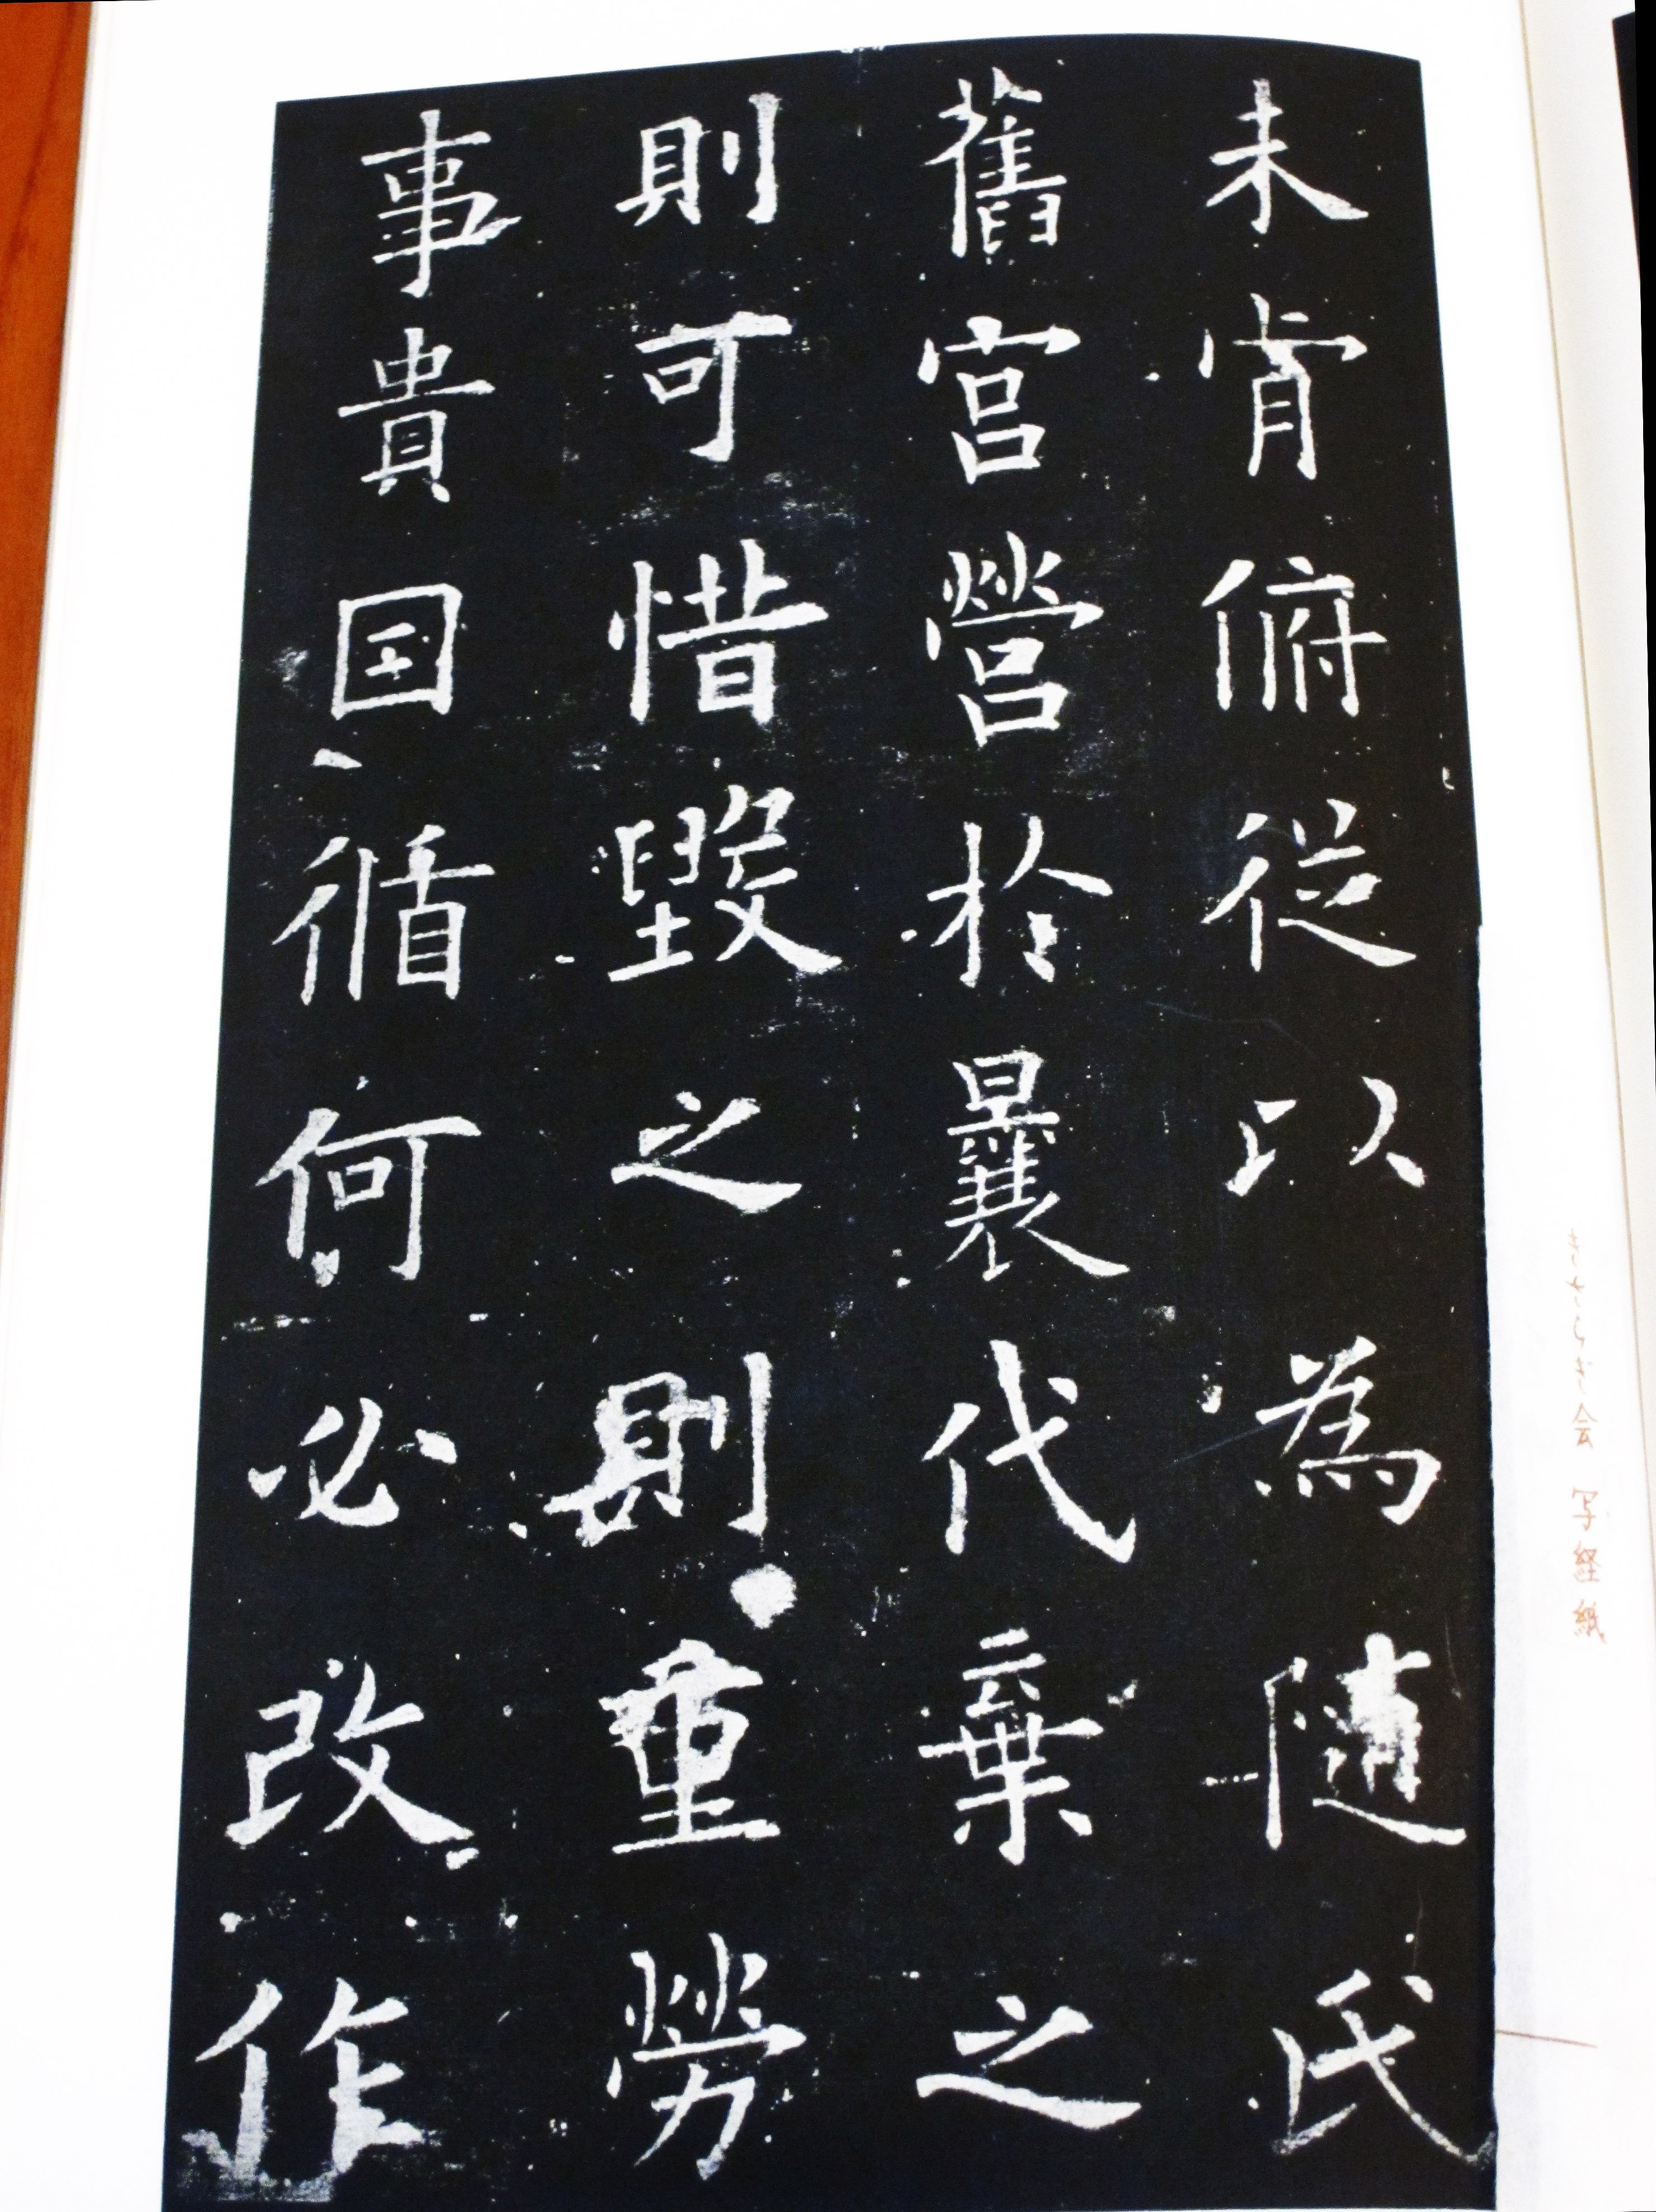 未肯俯從以為隨氏
舊宮營於曩代棄之
則可惜毀之則重勞
事貴因循何必改作
会 写経紙